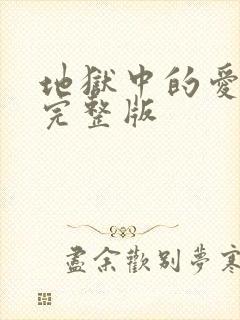 地獄中的愛
完整版
盡余歡別夢寒